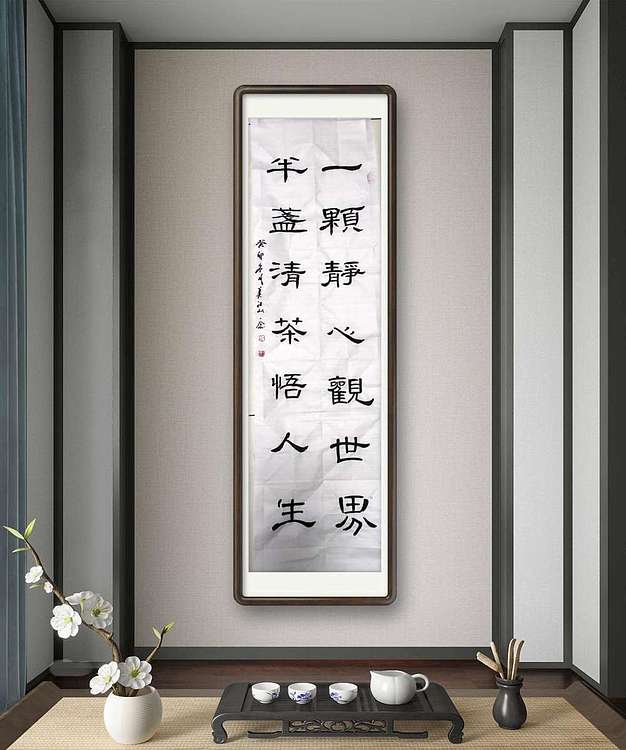 一顆靜心觀世界
半盞清茶悟人生
癸卯冬月